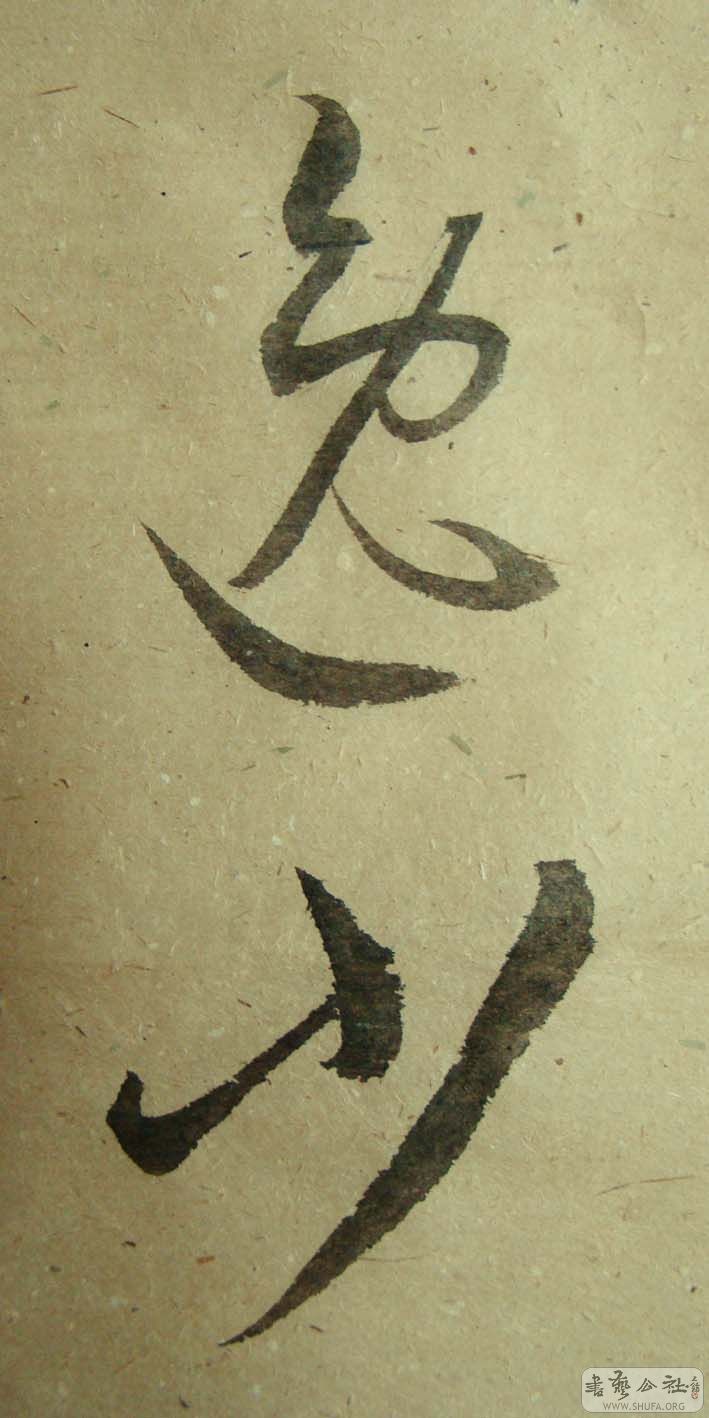 逸少
書藝公社
WWW.SHUFA.ORG